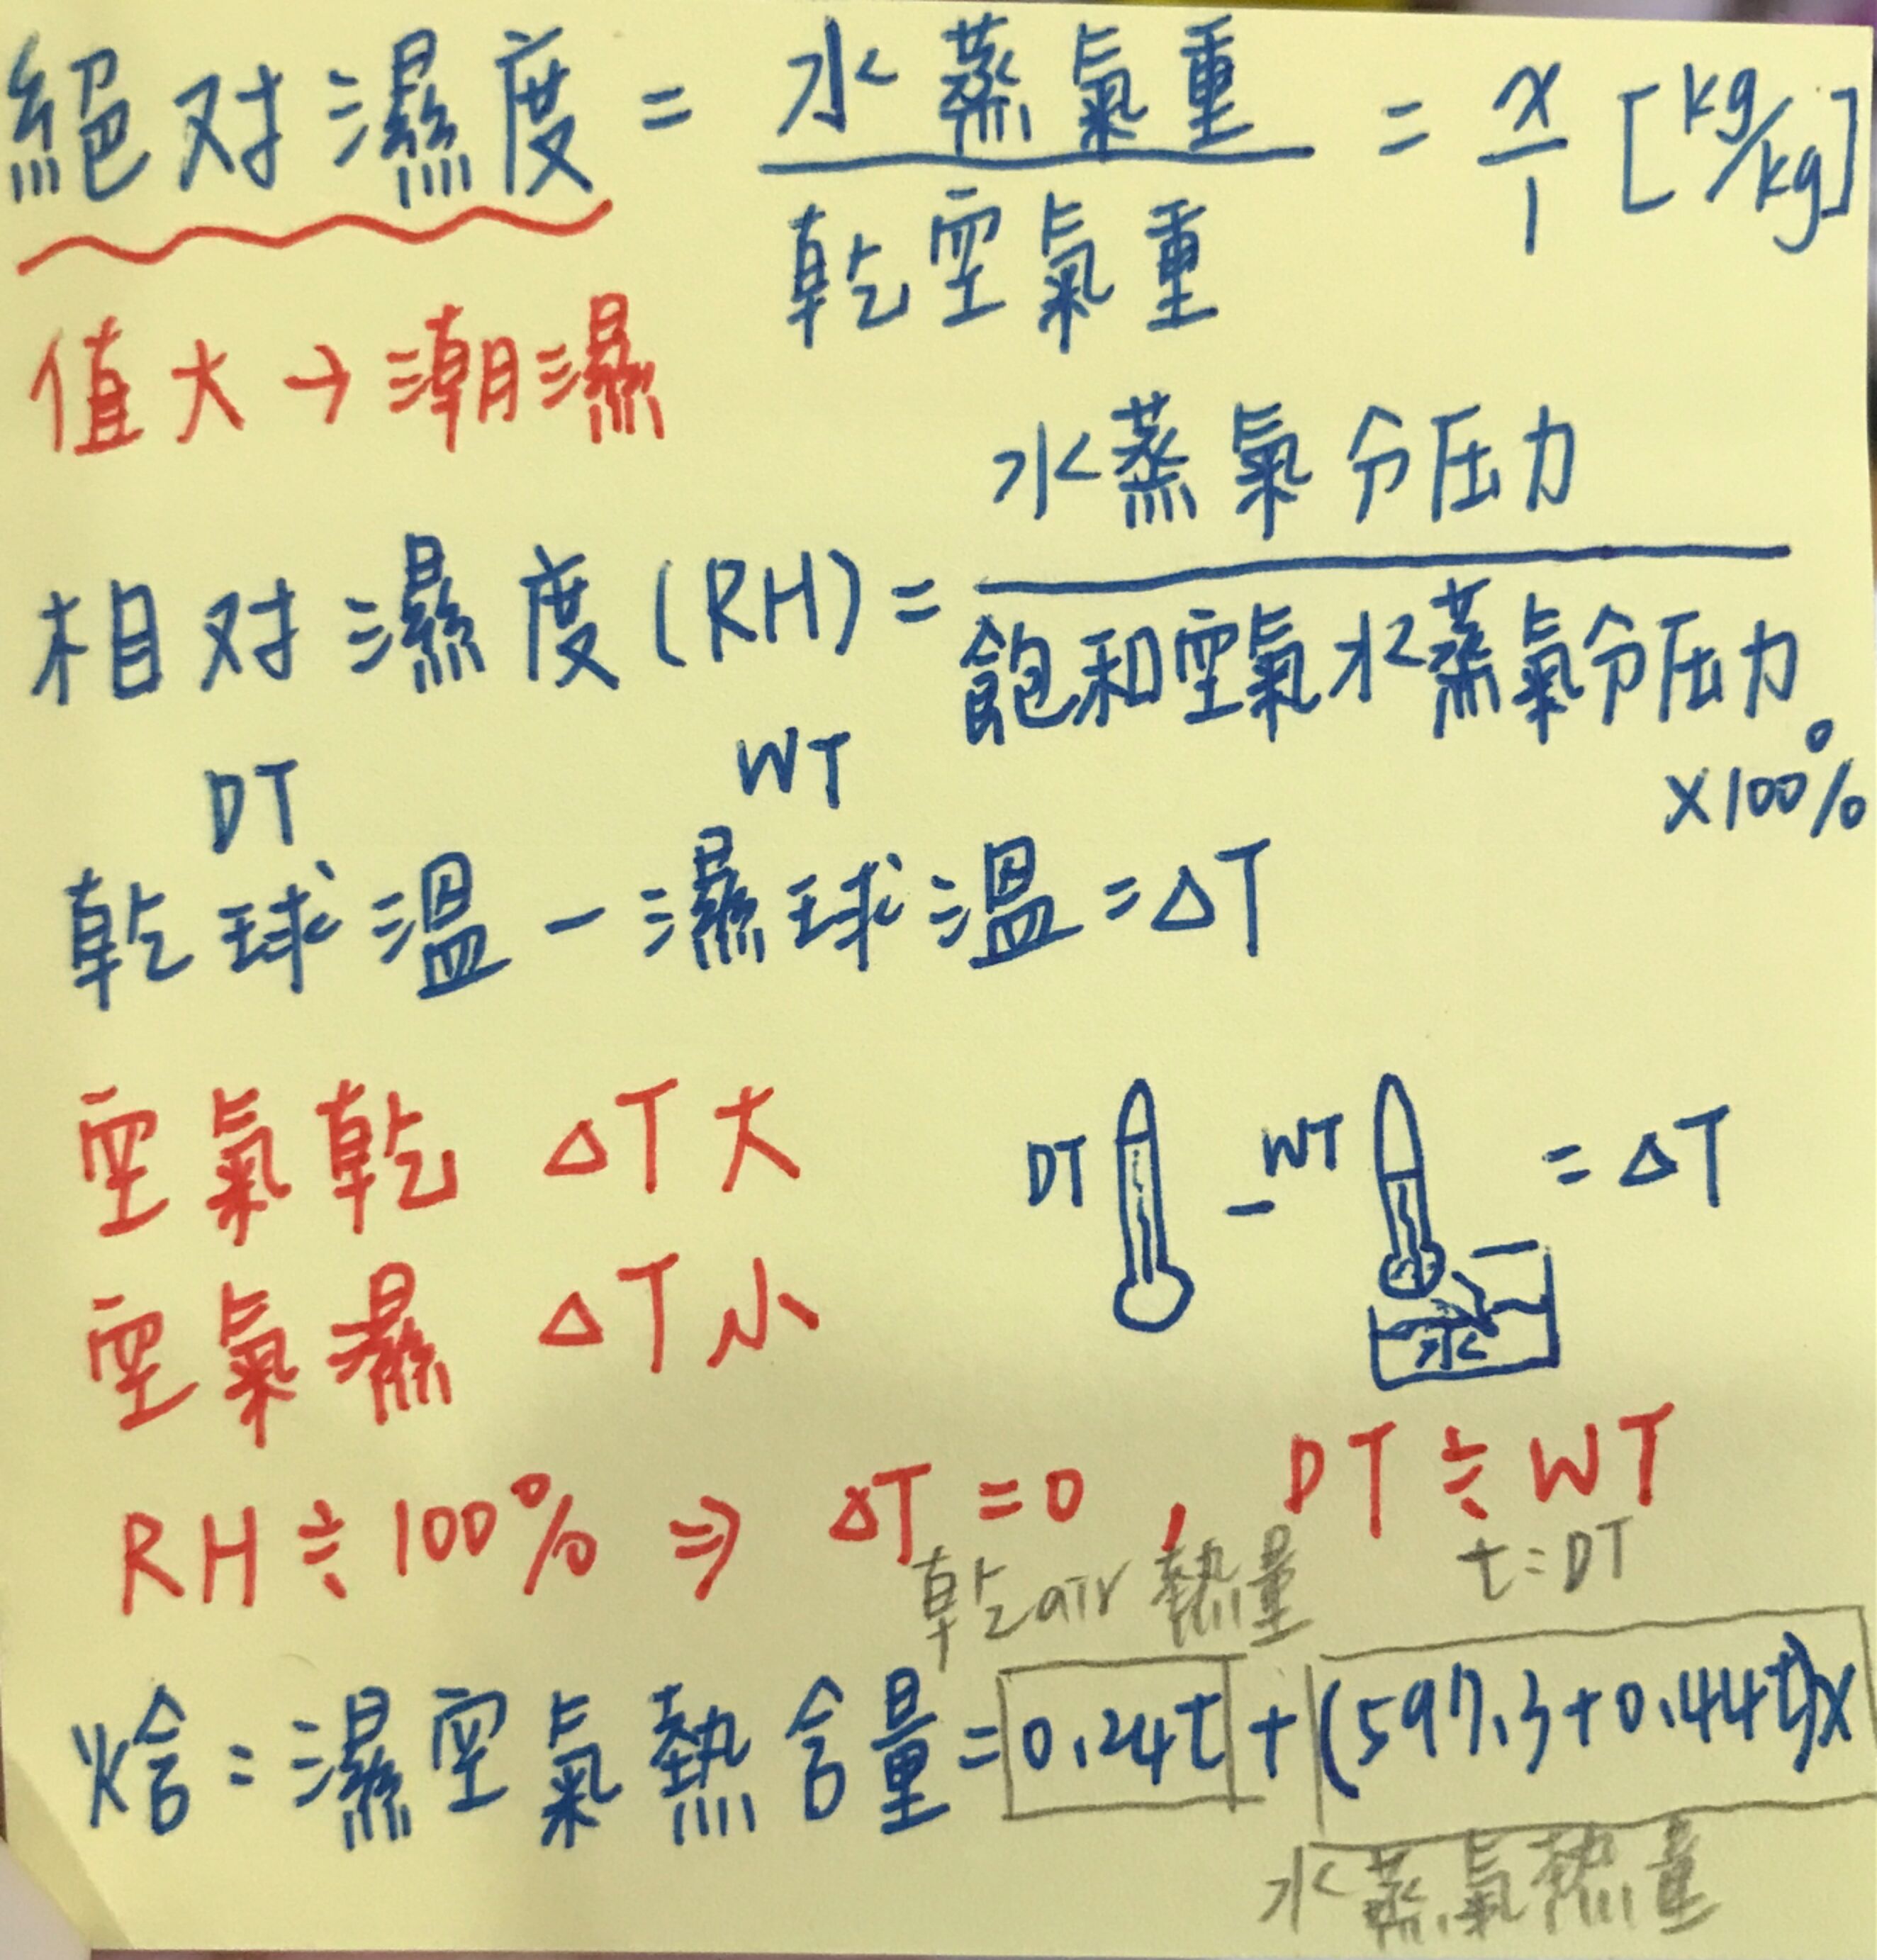 絕对濕度 = 水蒸氣重 / 乾空氣重 = x/1 [kg/kg]
值大→潮濕
相对濕度(RH) = 水蒸氣分压力 / 飽和空氣水蒸氣分压力 ×100%
DT WT
乾球溫 - 濕球溫 = ΔT
空氣乾 ΔT大
DT - WT = ΔT
水
空氣濕 ΔT小
RH≒100% ⇒ ΔT=0, DT≒WT
乾air熱量 t=DT
焓:濕空氣熱含量=0.24t+(597.3+0.44t)x
水蒸氣熱量